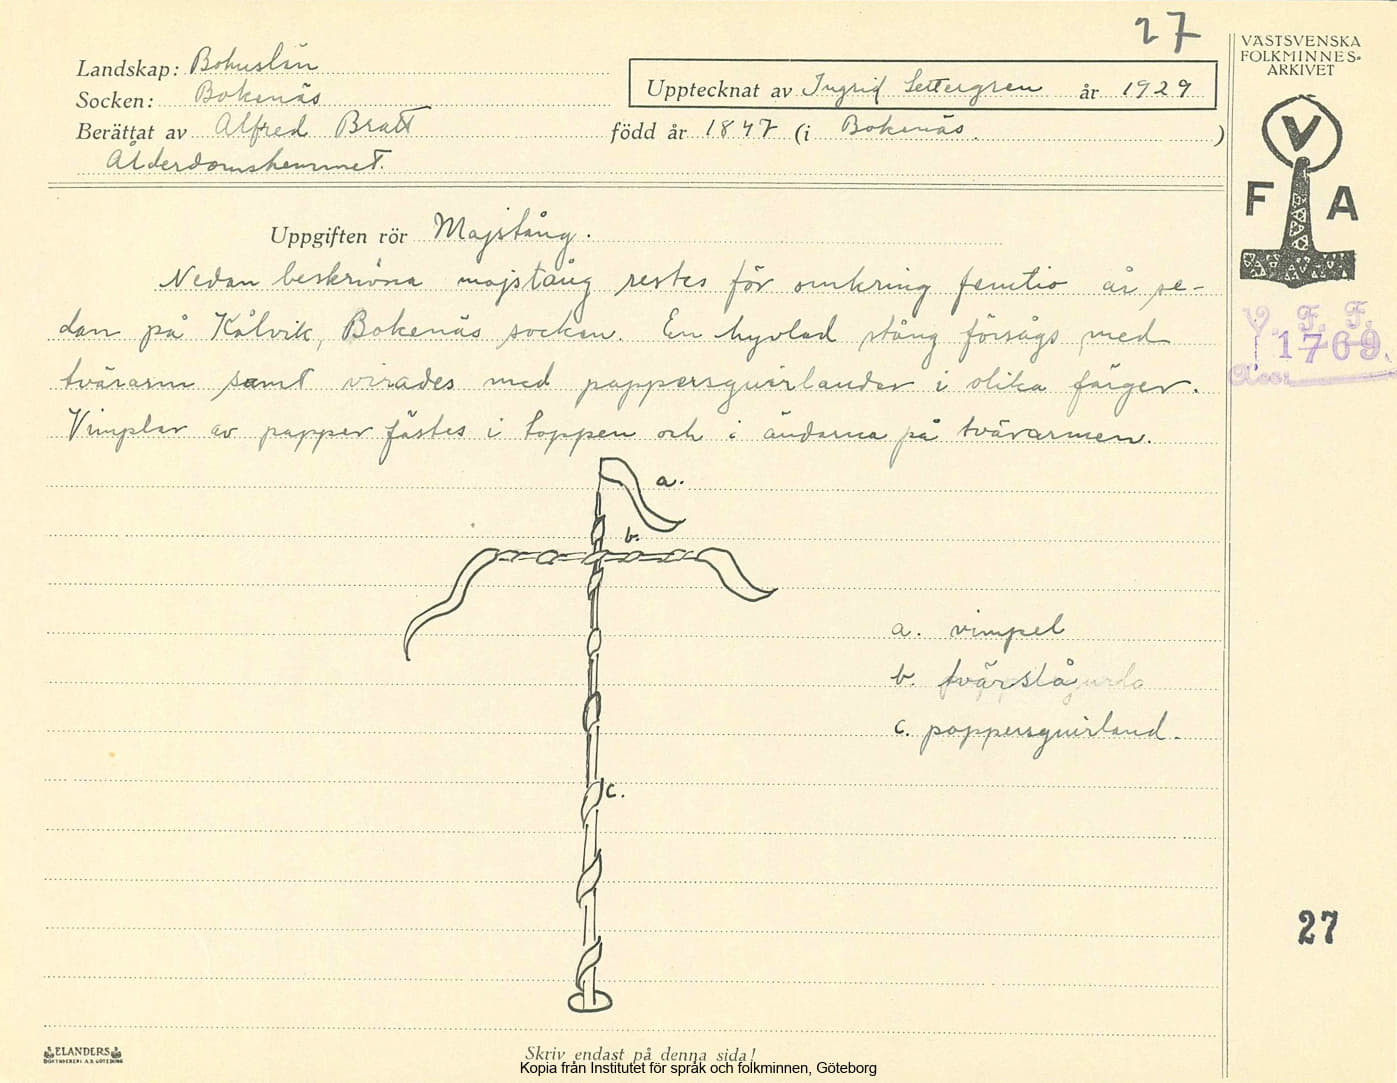 27
Landskap: Bohuslän
Socken: Bokenäs
Berättat av Alfred Bratt
Ålderdomshemmet.
Upptecknat av Ingrid Settergren år 1929
född år 1847 (i Bokenäs. )
VÄSTSVENSKA
FOLKMINNES-
ARKIVET
V
F A
V. F. F.
1769.
Acc:
Uppgiften rör Majstång.
Nedan beskrivna majstång restes för omkring femtio år se-
dan på Kålvik, Bokenäs socken. En hyvlad stång försågs med
tvärarm samt virades med pappersguirlander i olika färger.
Vimplar av papper fästes i toppen och i ändarna på tvärarmen.
a.
b.
c.
a. vimpel
b. tvärslå
c. pappersguirland.
27
ELANDERS
BOKTRYCKERI A.B. GÖTEBORG
Skriv endast på denna sida!
Kopia från Institutet för språk och folkminnen, Göteborg